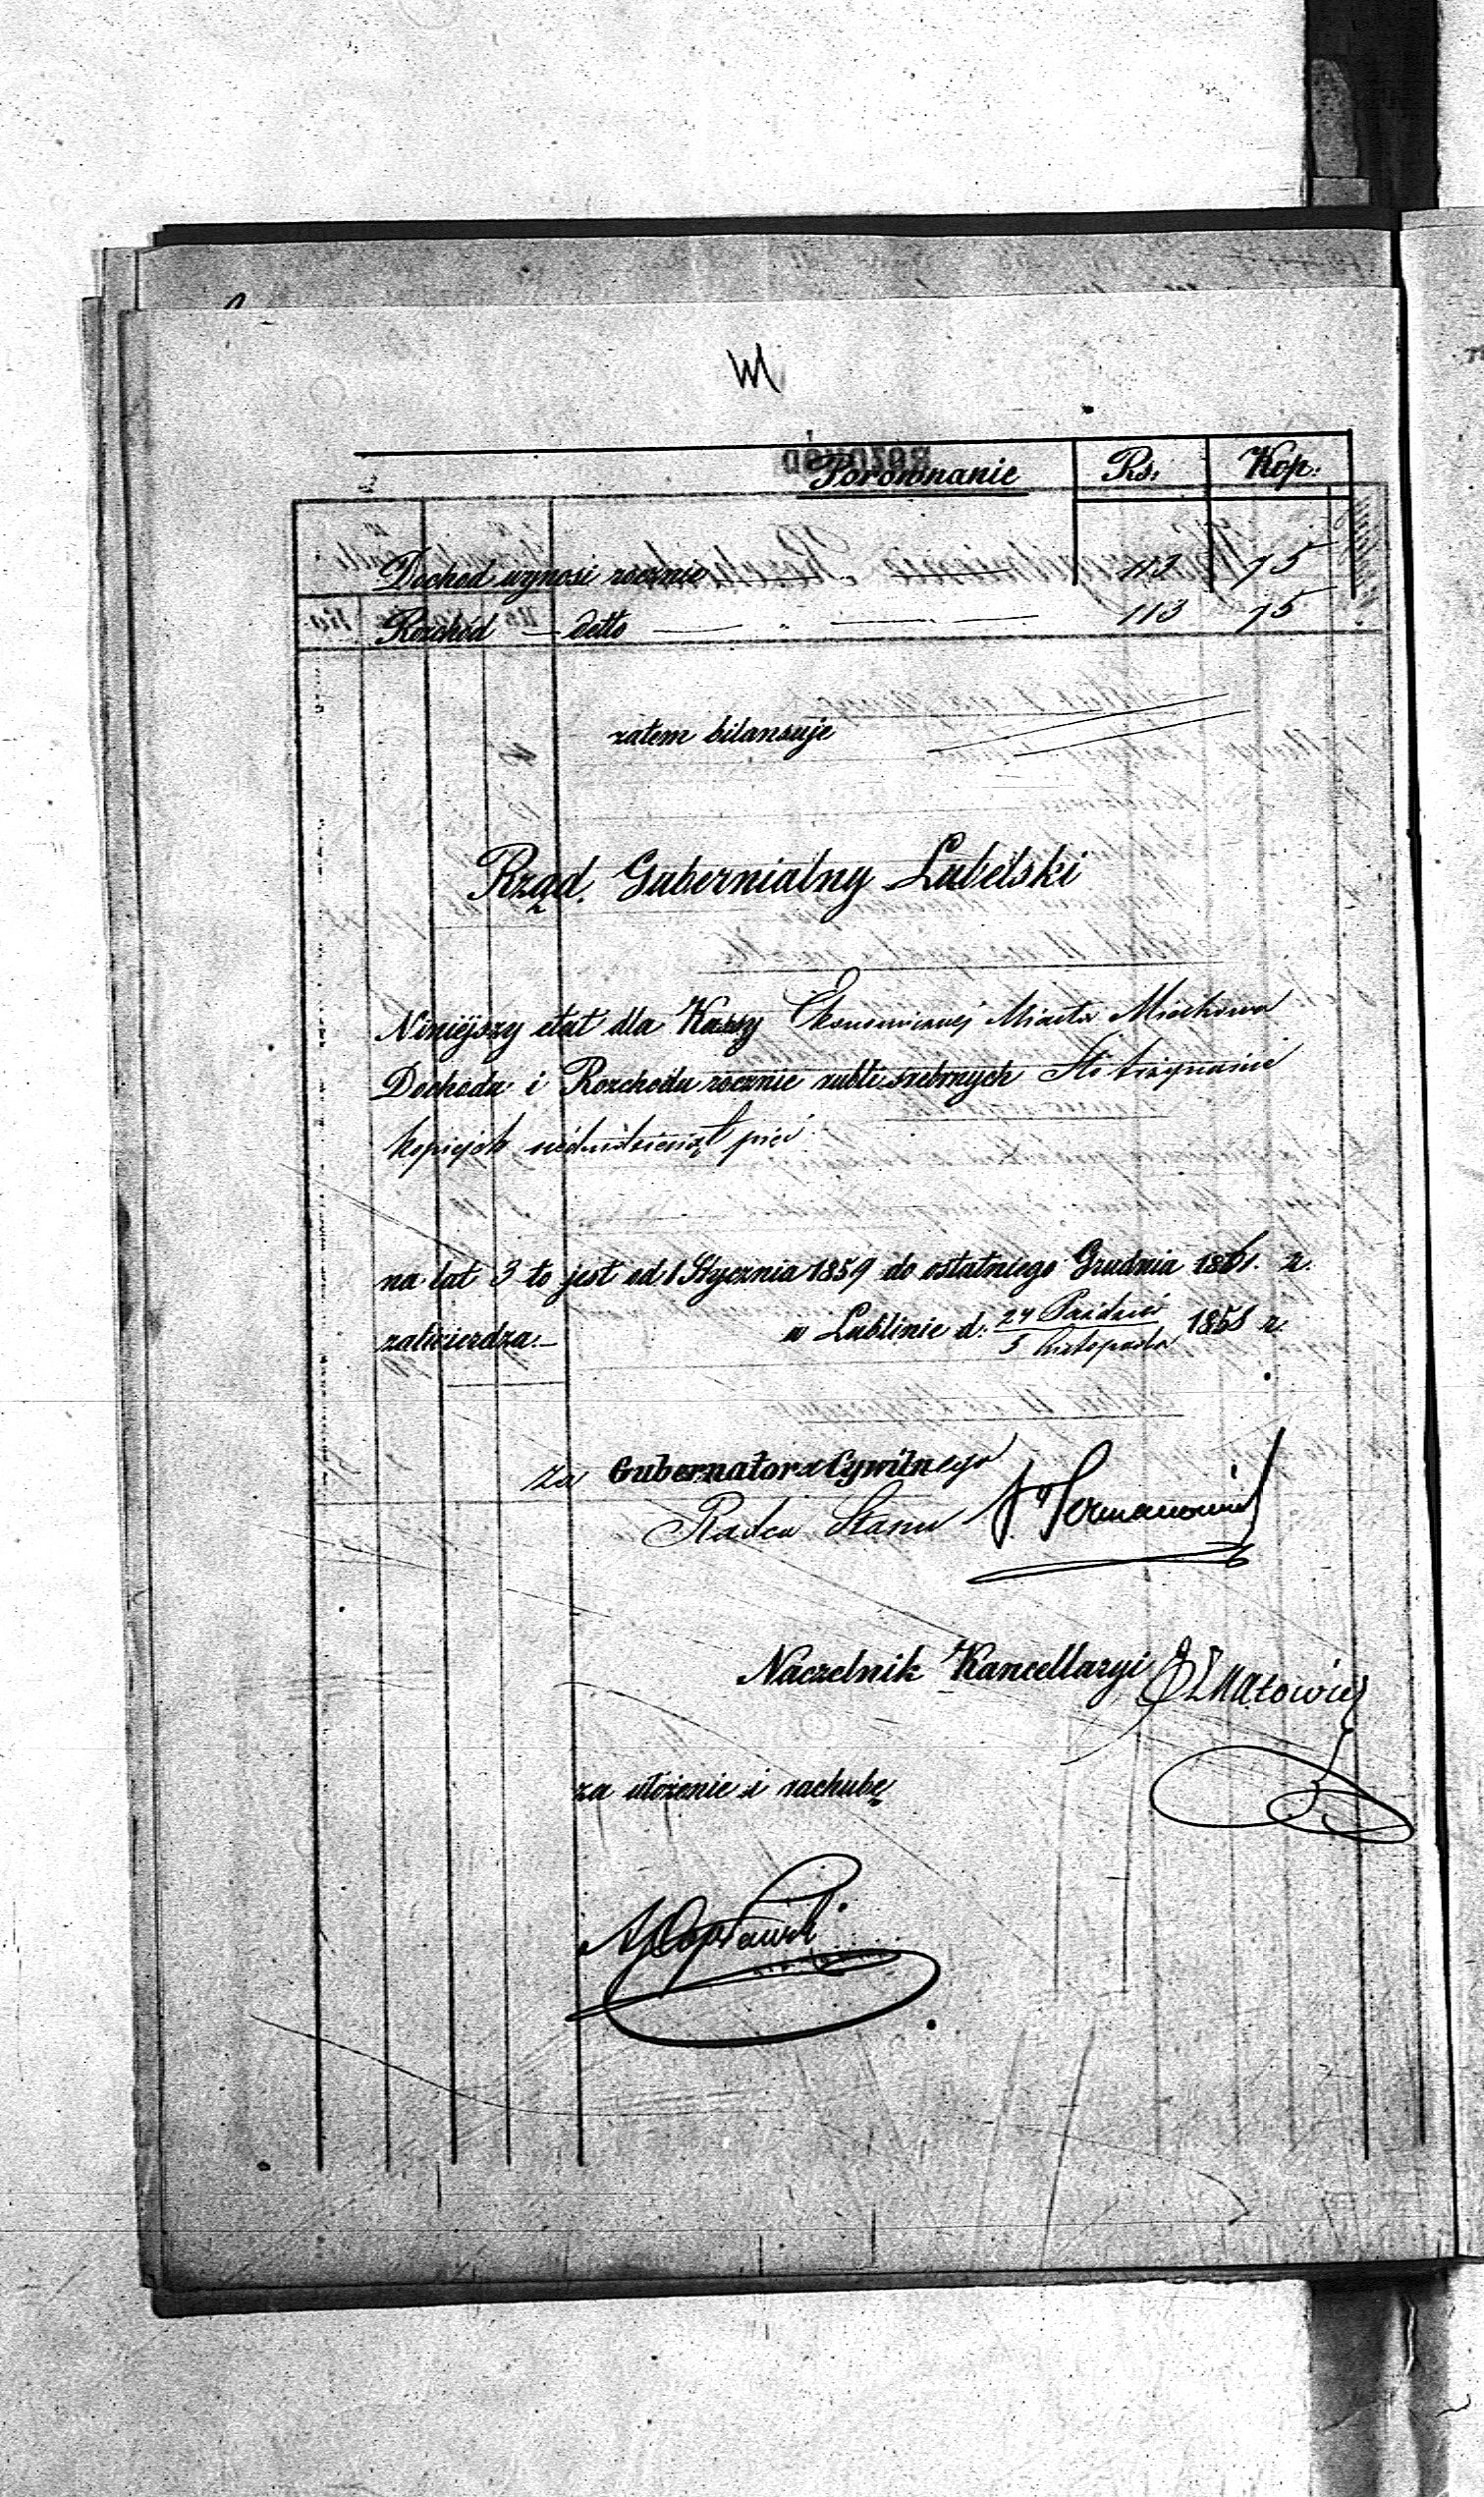 Porównanie Rs. Kop.
Dochód wynosi rocznie 113 75
Rozchód — detto — „ — 113 75
zatem bilansuje
Rząd Gubernialny Lubelski
Niniejszy etat dla Kassy Ekonomicznej Miasta
Dochodu i Rozchodu rocznie rubli srebrnych Sto trzynaście
kopiejek siedmdziesiąt pięć
na lat 3 to jest od 1 Stycznia 1859 do ostatniego Grudnia 1861. r.
zatwierdza.— w Lublinie d. 24 Paździer 1858 r.
5 Listopada
za Gubernatora Cywilnego
Radca Stanu
Naczelnik Kancellaryi
za ułożenie i rachubę